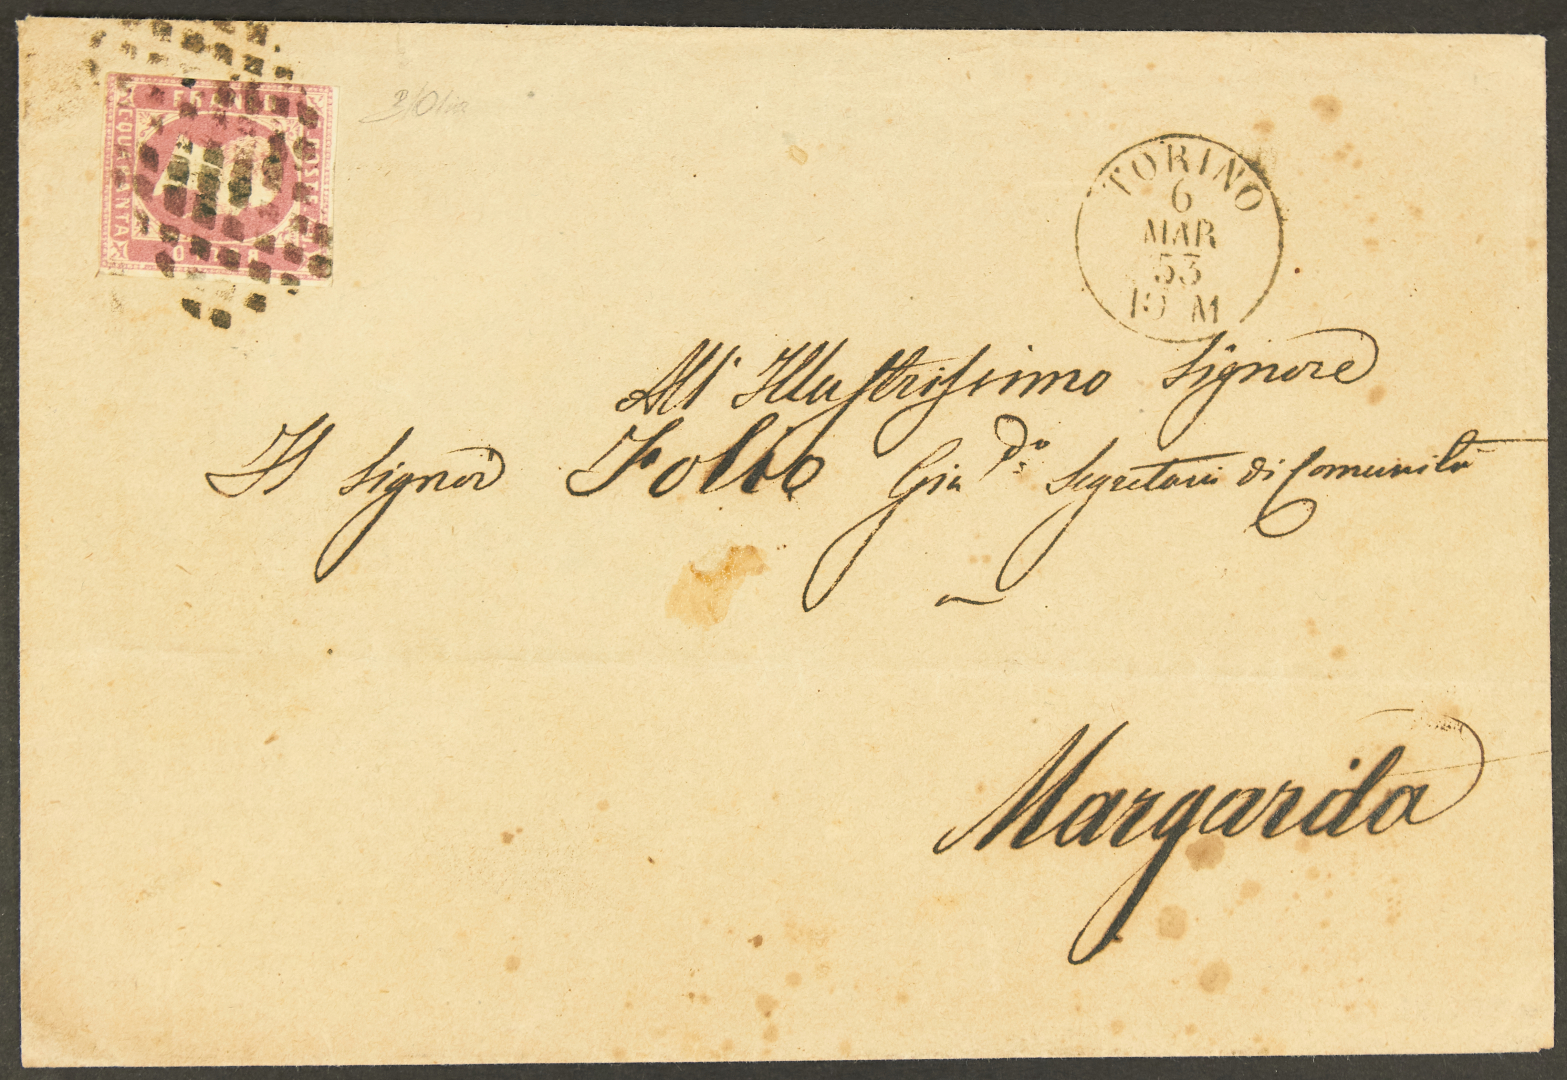 FRANCO
C.CINQUANTA
POSTE
TORINO
6
MAR
53
10 M
All' Illustrissimo Signore
Il Signor Folio Gia. Segretario di Comunità
Margarita